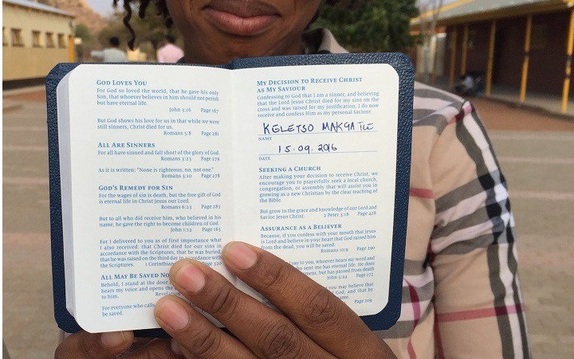 GOD LOVES YOU
For God so loved the world, that he gave his only
Son, that whoever believes in him should not perish
but have eternal life.
John 3:16
But God shows his love for us in that while we were
still sinners, Christ died for us.
Romans 5:8
ALL ARE SINNERS
For all have sinned and fall short of the glory of God.
Romans 3:23
As it is written: "None is righteous, no, not one."
Romans 3:10
GOD'S REMEDY FOR SIN
For the wages of sin is death, but the free gift of God
is eternal life in Christ Jesus our Lord.
Romans 6:23
But to all who did receive him, who believed in his
name, he gave the right to become children of God.
John 1:12
For I delivered to you as of first importance what
I also received: that Christ died for our sins in
accordance with the Scriptures, that he was buried,
that he was raised on the third day in accordance with
the Scriptures.
1 Corinthians
ALL MAY BE SAVED NO
Behold, I stand at the door
my voice and opens the
to him.
For everyone who calls
be saved.
MY DECISION TO RECEIVE CHRIST
AS MY SAVIOUR
Confessing to God that I am a sinner, and believing
that the Lord Jesus Christ died for my sins on the
cross and was raised for my justification, I do now
receive and confess Him as my personal Saviour.
KELETSO
NAME
15.09.2016
DATE
SEEKING A CHURCH
After making your decision to receive Christ, we
encourage you to prayerfully seek a local church,
congregation, or assembly that will assist you in
growing as a new Christian by the clear teaching of
the Bible.
But grow in the grace and knowledge of our Lord and
Savior Jesus Christ.
2 Peter 3:18
ASSURANCE AS A BELIEVER
Because, if you confess with your mouth that Jesus
is Lord and believe in your heart that God raised him
from the dead, you will be saved.